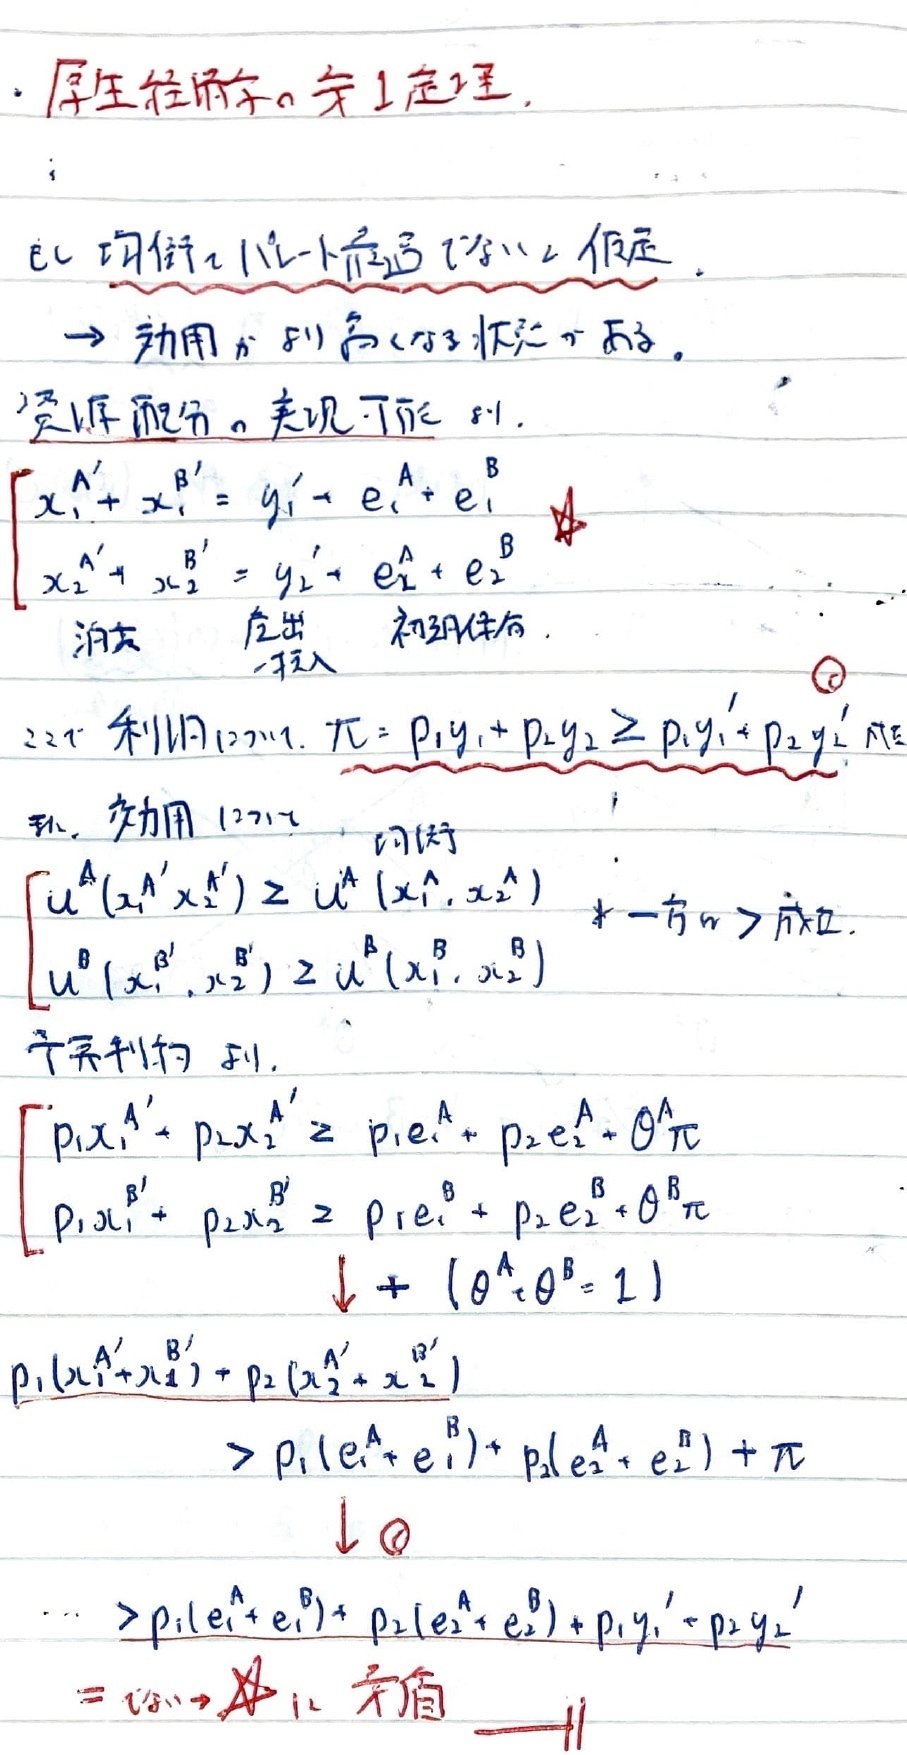 ・厚生経済学の第1定理.
もし 均衡でパレート最適でないと仮定.
→ 効用がより高くなる状況がある。
資源配分の実現可能より.
x₁^A' + x₁^B' = y₁' + e₁^A + e₁^B ☆
x₂^A' + x₂^B' = y₂' + e₂^A + e₂^B
消費 産出 初期保有.
-投入
◎
ここで 利潤について. π = p₁y₁ + p₂y₂ ≥ p₁y₁' + p₂y₂' 成立
また. 効用について
均衡
u^A(x₁^A' x₂^A') ≥ u^A(x₁^A, x₂^A) * 一方は > 成立.
u^B(x₁^B', x₂^B') ≥ u^B(x₁^B, x₂^B)
予算制約 より.
p₁x₁^A' + p₂x₂^A' ≥ p₁e₁^A + p₂e₂^A + θ^Aπ
p₁x₁^B' + p₂x₂^B' ≥ p₁e₁^B + p₂e₂^B + θ^Bπ
↓ + (θ^A + θ^B = 1)
p₁(x₁^A' + x₁^B') + p₂(x₂^A' + x₂^B')
> p₁(e₁^A + e₁^B) + p₂(e₂^A + e₂^B) + π
↓ ◎
… > p₁(e₁^A + e₁^B) + p₂(e₂^A + e₂^B) + p₁y₁' + p₂y₂'
= でない → ☆ に 矛盾